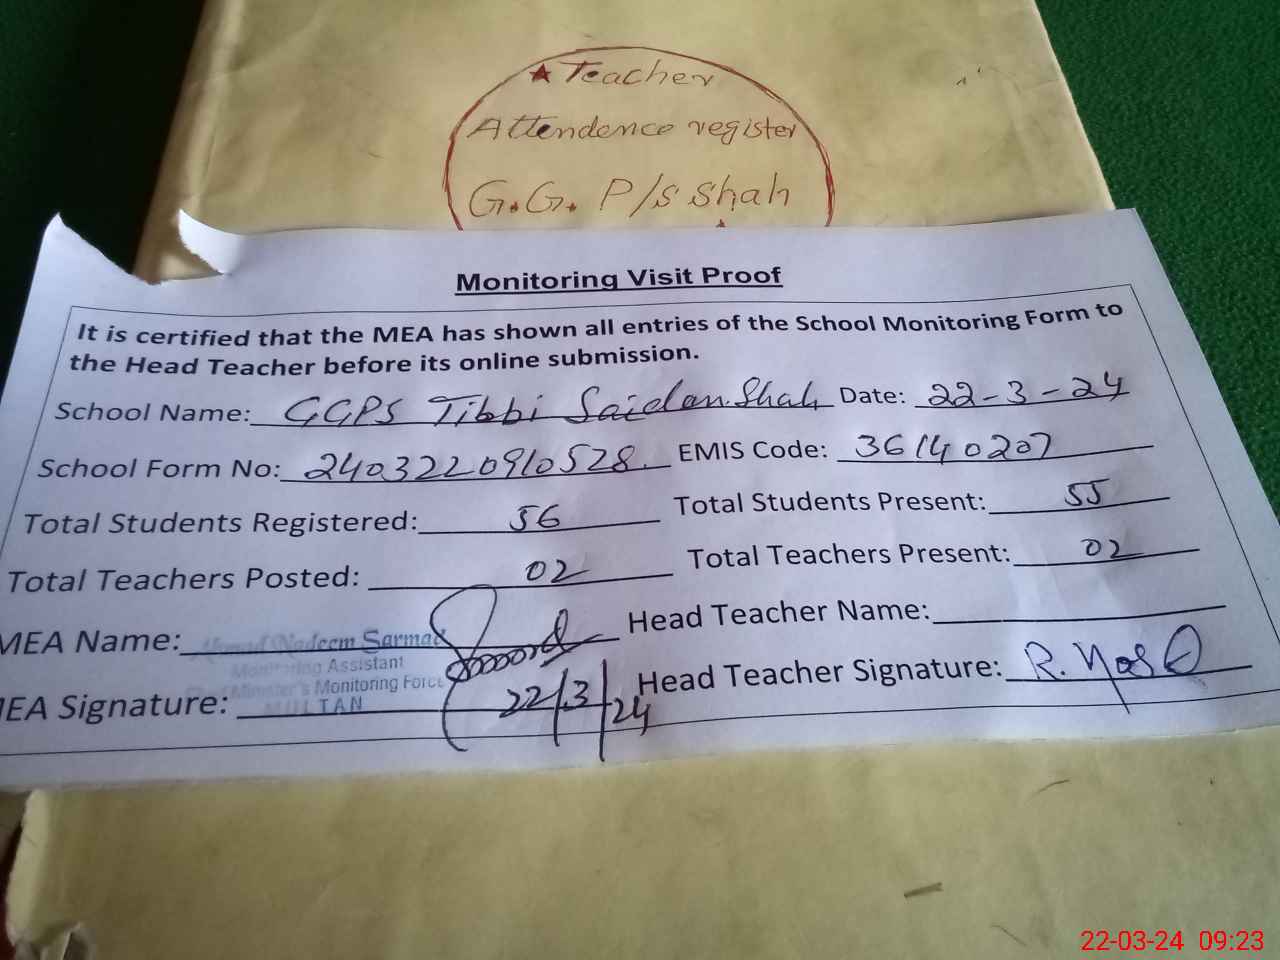 ★ Teacher
Attendence register
G.G. P/s Shah
Monitoring Visit Proof
It is certified that the MEA has shown all entries of the School Monitoring Form to
the Head Teacher before its online submission.
School Name: GGPS Tibbi Saidan Shah Date: 22-3-24
School Form No: 2403220910528 EMIS Code: 36140207
Total Students Registered: 56 Total Students Present: 55
Total Teachers Posted: 02 Total Teachers Present: 02
MEA Name: Ahmad Nadeem Sarmad Head Teacher Name:
Monitoring Assistant
Chief Minister's Monitoring Force
MULTAN
MEA Signature: 22/3/24 Head Teacher Signature: R.
22-03-24 09:23